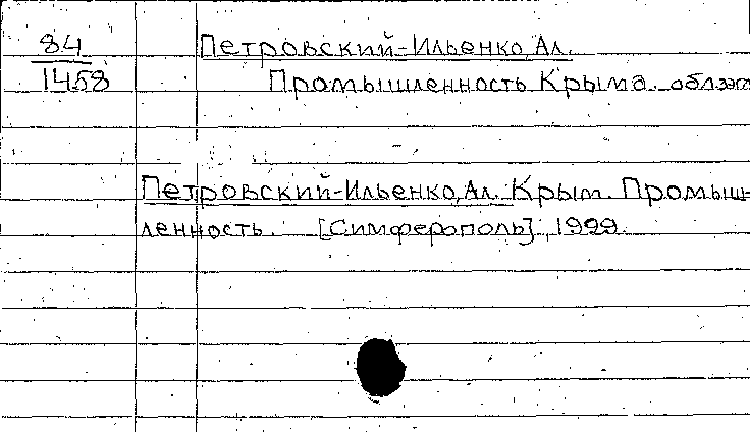 84
1458
Петровский-Ильенко, Ал.
Промышленность Крыма.
Петровский-Ильенко, Ал. Крым. Промыш-
ленность. [Симферополь], 1999.